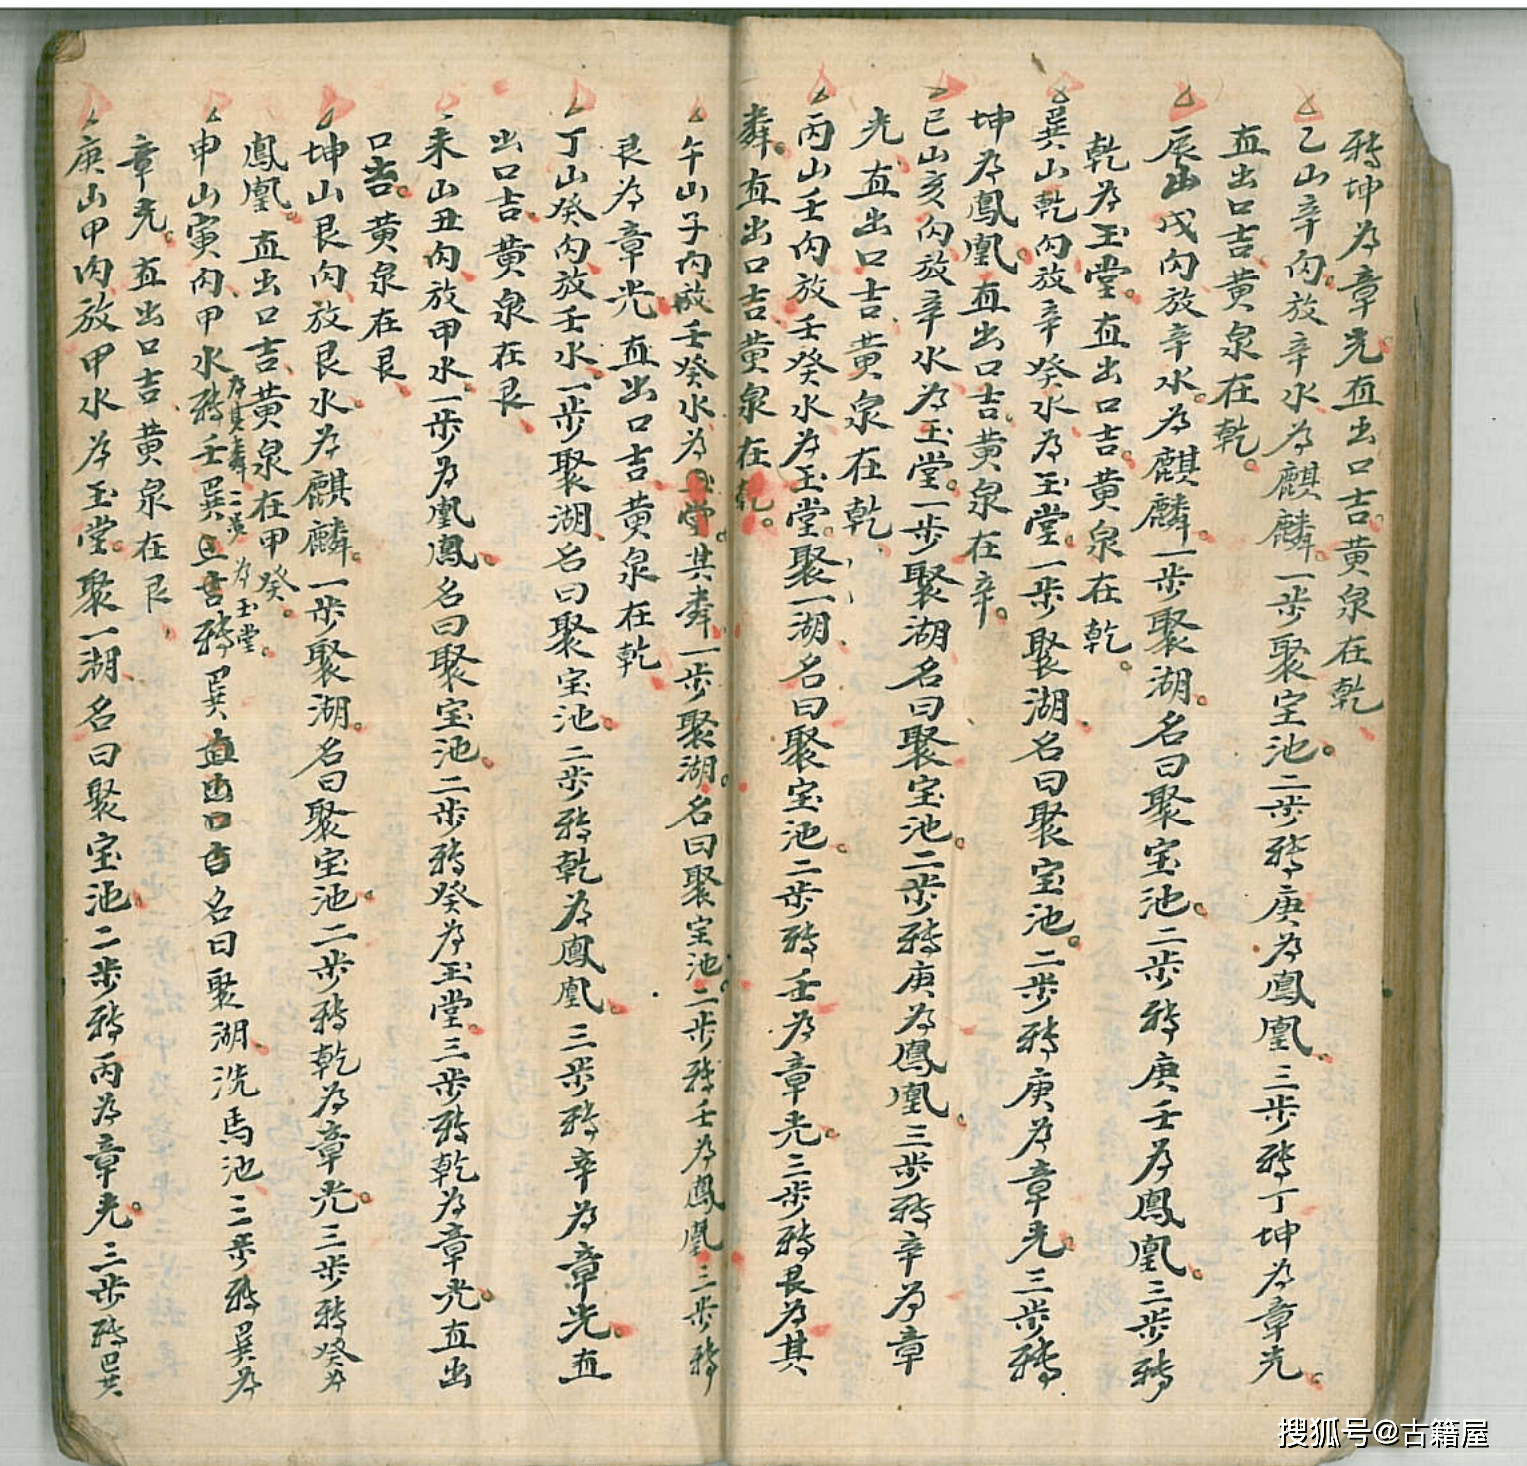 轉坤為章光直出口吉黃泉在乾
乙山辛向放辛水為麒麟一步聚宝池二步轉庚為鳳凰三步轉丁坤為章光
直出口吉黃泉在乾
辰山戌向放辛水為麒麟一步聚湖名曰聚宝池二步轉庚壬為鳳凰三步轉
乾為玉堂直出口吉黃泉在乾
巽山乾向放辛癸水為玉堂一步聚湖名曰聚宝池二步轉庚為章光三步轉
坤為鳳凰直出口吉黃泉在辛
巳山亥向放辛水為玉堂一步聚湖名曰聚宝池二步轉庚為鳳凰三步轉辛為章
光直出口吉黃泉在乾
丙山壬向放壬癸水為玉堂聚一湖名曰聚宝池二步轉壬為章光三步轉艮為其
粦直出口吉黃泉在乾
午山子向放壬癸水為玉堂其粦一步聚湖名曰聚宝池二步轉壬為鳳凰三步轉
艮為章光直出口吉黃泉在乾
丁山癸向放壬水一步聚湖名曰聚宝池二步轉乾為鳳凰三步轉辛為章光直
出口吉黃泉在艮
未山丑向放甲水一步為凰鳳名曰聚宝池二步轉癸為玉堂三步轉乾為章光直出
口吉黃泉在艮
坤山艮向放艮水為麒麟一步聚湖名曰聚宝池二步轉乾為章光三步轉癸為
鳳凰直出口吉黃泉在甲癸
申山寅向甲水轉壬巽為其粦二黃為玉堂吉轉巽直出口吉名曰聚湖洗馬池三步轉巽為
章光直出口吉黃泉在艮
庚山甲向放甲水為玉堂聚一湖名曰聚宝池二步轉丙為章光三步轉巽
搜狐号@古籍屋